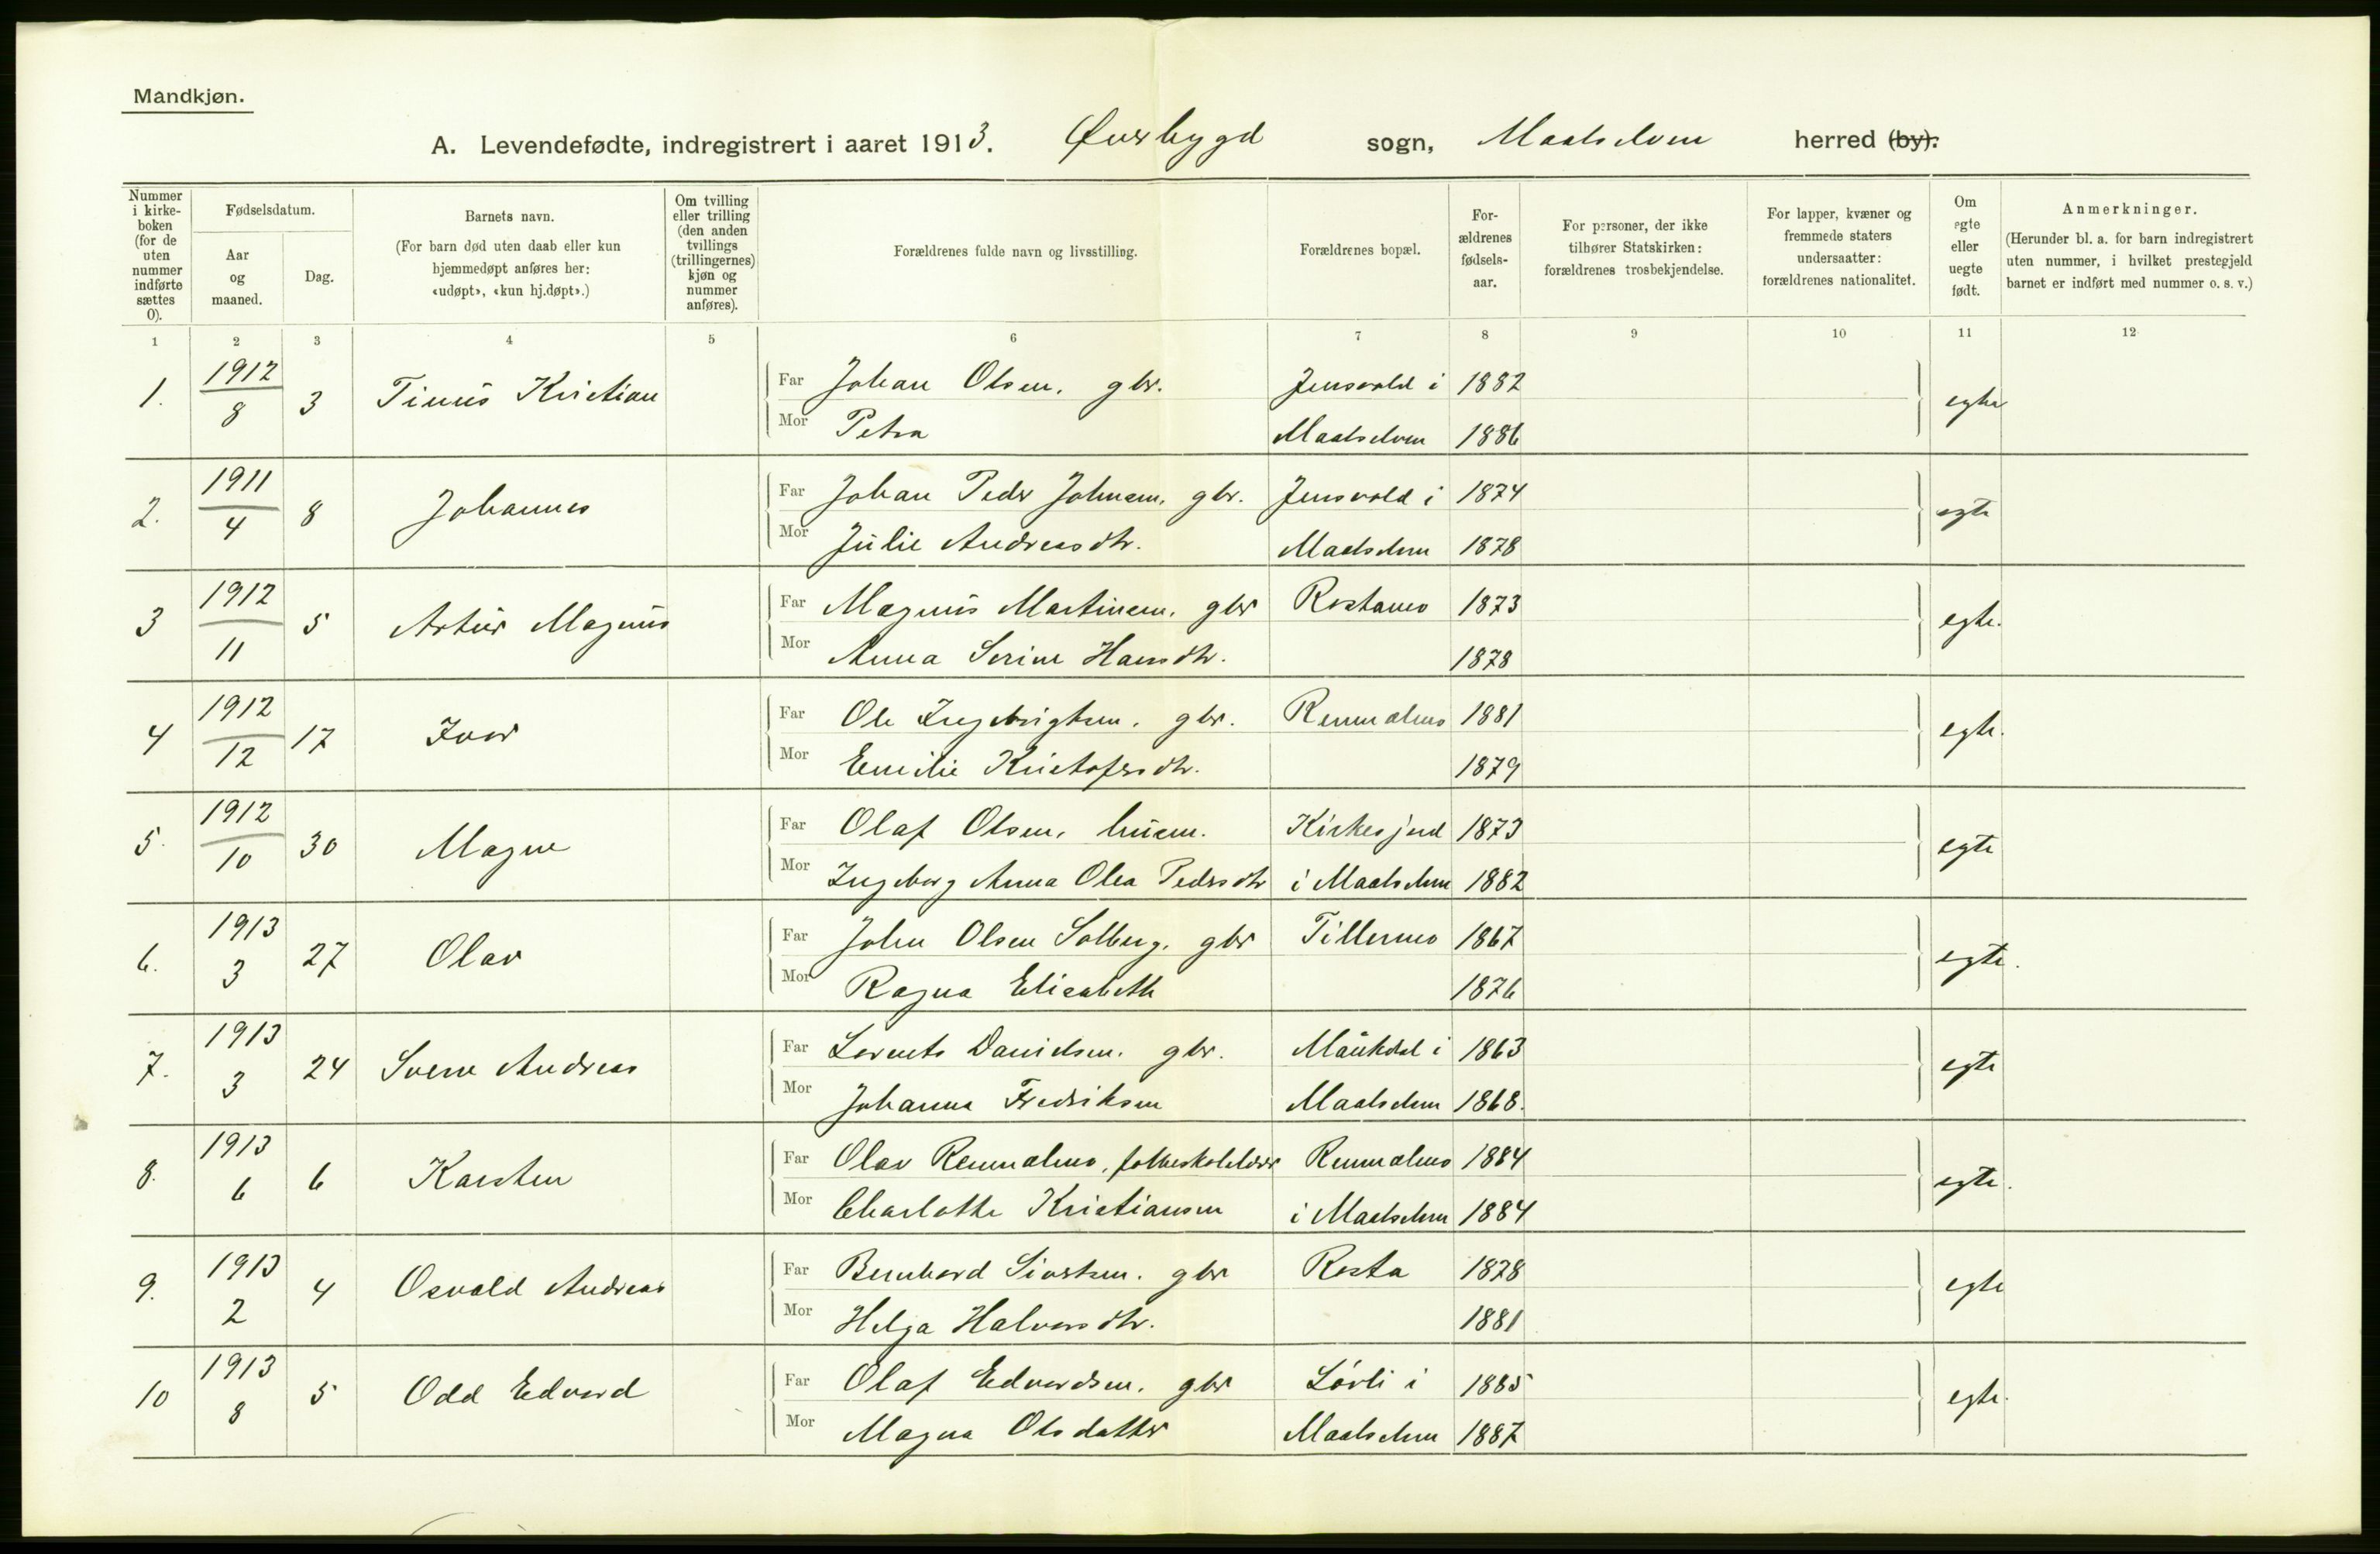 Mandkjøn.
A. Levendefødte, indregistrert i aaret 1913. Øverbygd sogn, Maalselven herred (by).
Nummer i kirkeboken (for de uten nummer indførte sættes 0).
Fødselsdatum.
Aar og maaned.
Dag.
Barnets navn.
(For barn død uten daab eller kun hjemmedøpt anføres her: «udøpt», «kun hj.døpt».)
Om tvilling eller trilling (den anden tvillings (trillingernes) kjøn og nummer anføres).
Forældrenes fulde navn og livsstilling.
Forældrenes bopæl.
Forældrenes fødselsaar.
For personer, der ikke tilhører Statskirken: forældrenes trosbekjendelse.
For lapper, kvæner og fremmede staters undersaatter: forældrenes nationalitet.
Om egte eller uegte født.
Anmerkninger.
(Herunder bl. a. for barn indregistrert uten nummer, i hvilket prestegjeld barnet er indført med nummer o. s. v.)
1 2 3 4 5 6 7 8 9 10 11 12
1. 1912 8 3 Tinus Kristian Far Johan Olsen, gbr. Jensvold i 1882 egte
Mor Petra Maalselven 1886
2. 1911 4 8 Johannes Far Johan Peder Johnsen, gbr. Jensvold i 1874 egte
Mor Julie Andreasdtr. Maalselven 1878
3 1912 11 5 Artur Magnus Far Magnus Martinsen, gbr Rostamo 1873 egte.
Mor Anna Serine Hansdtr. 1878
4 1912 12 17 Ivar Far Ole Ingebrigtsen, gbr. Rennalmo 1881 egte.
Mor Emilie Kristofersdtr. 1879
5. 1912 10 30 Magne Far Olaf Olsen, husm. Kirkesjord 1873 egte
Mor Ingeborg Anna Olea Pedersdtr i Maalselven 1882
6. 1913 3 27 Olav Far John Olsen Solberg, gbr Tillermo 1867 egte.
Mor Ragna Elisabeth 1876
7. 1913 3 24 Sverre Andreas Far Lorents Danielsen, gbr. Maukdal i 1863 egte
Mor Johanna Fredriksen Maalselven 1868.
8. 1913 6 6 Karsten Far Olav Rennalmo, folkeskolelærer Rennalmo 1884 egte.
Mor Charlotte Kristiansen i Maalselven 1884
9. 1913 2 4 Osvald Andreas Far Bernhard Sivertsen, gbr Rosta 1878 egte
Mor Helga Halvorsdtr. 1881
10 1913 8 5 Odd Edvard Far Olaf Edvardsen, gbr Løvli i 1885 egte.
Mor Magna Olsdatter Maalselven 1887